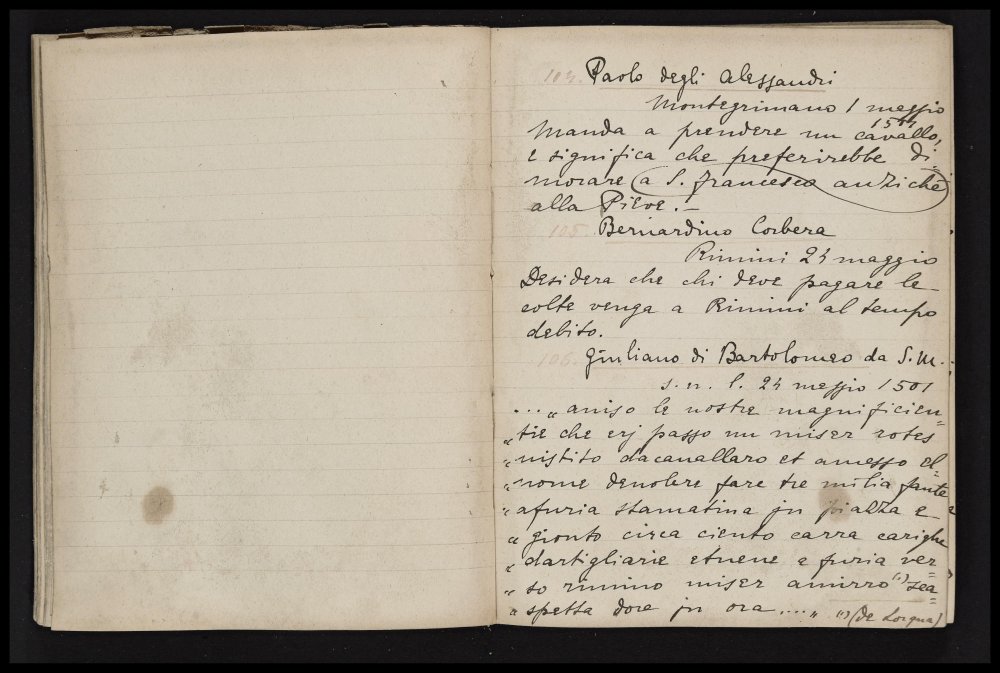 104. Paolo degli Alessandri
Montegrimano 1 maggio
1501
Manda a prendere un cavallo,
e significa che preferirebbe di
morare a S. Francesco anziché
alla Pieve. —
105. Bernardino Corbera
Rimini 21 maggio
Desidera che chi deve pagare le
colte venga a Rimini al tempo
debito.
106. Giuliano di Bartolomeo da S. M.
s. n. l. 24 maggio 1501
... „ aniso le nostre magnificien=
„ tie che erj passo un miser
„ nistito dacanallaro et amesso el
„ nome denolere fare tre milia fante
„ afuria stamatina jn piazza e
„ gionto circa ciento carra carighe
„ dartigliarie etuene a furia ver=
„ so rimino miser amirro (1) sea=
„ spetta dore jn ora .... „ (1) (de Lorqua)